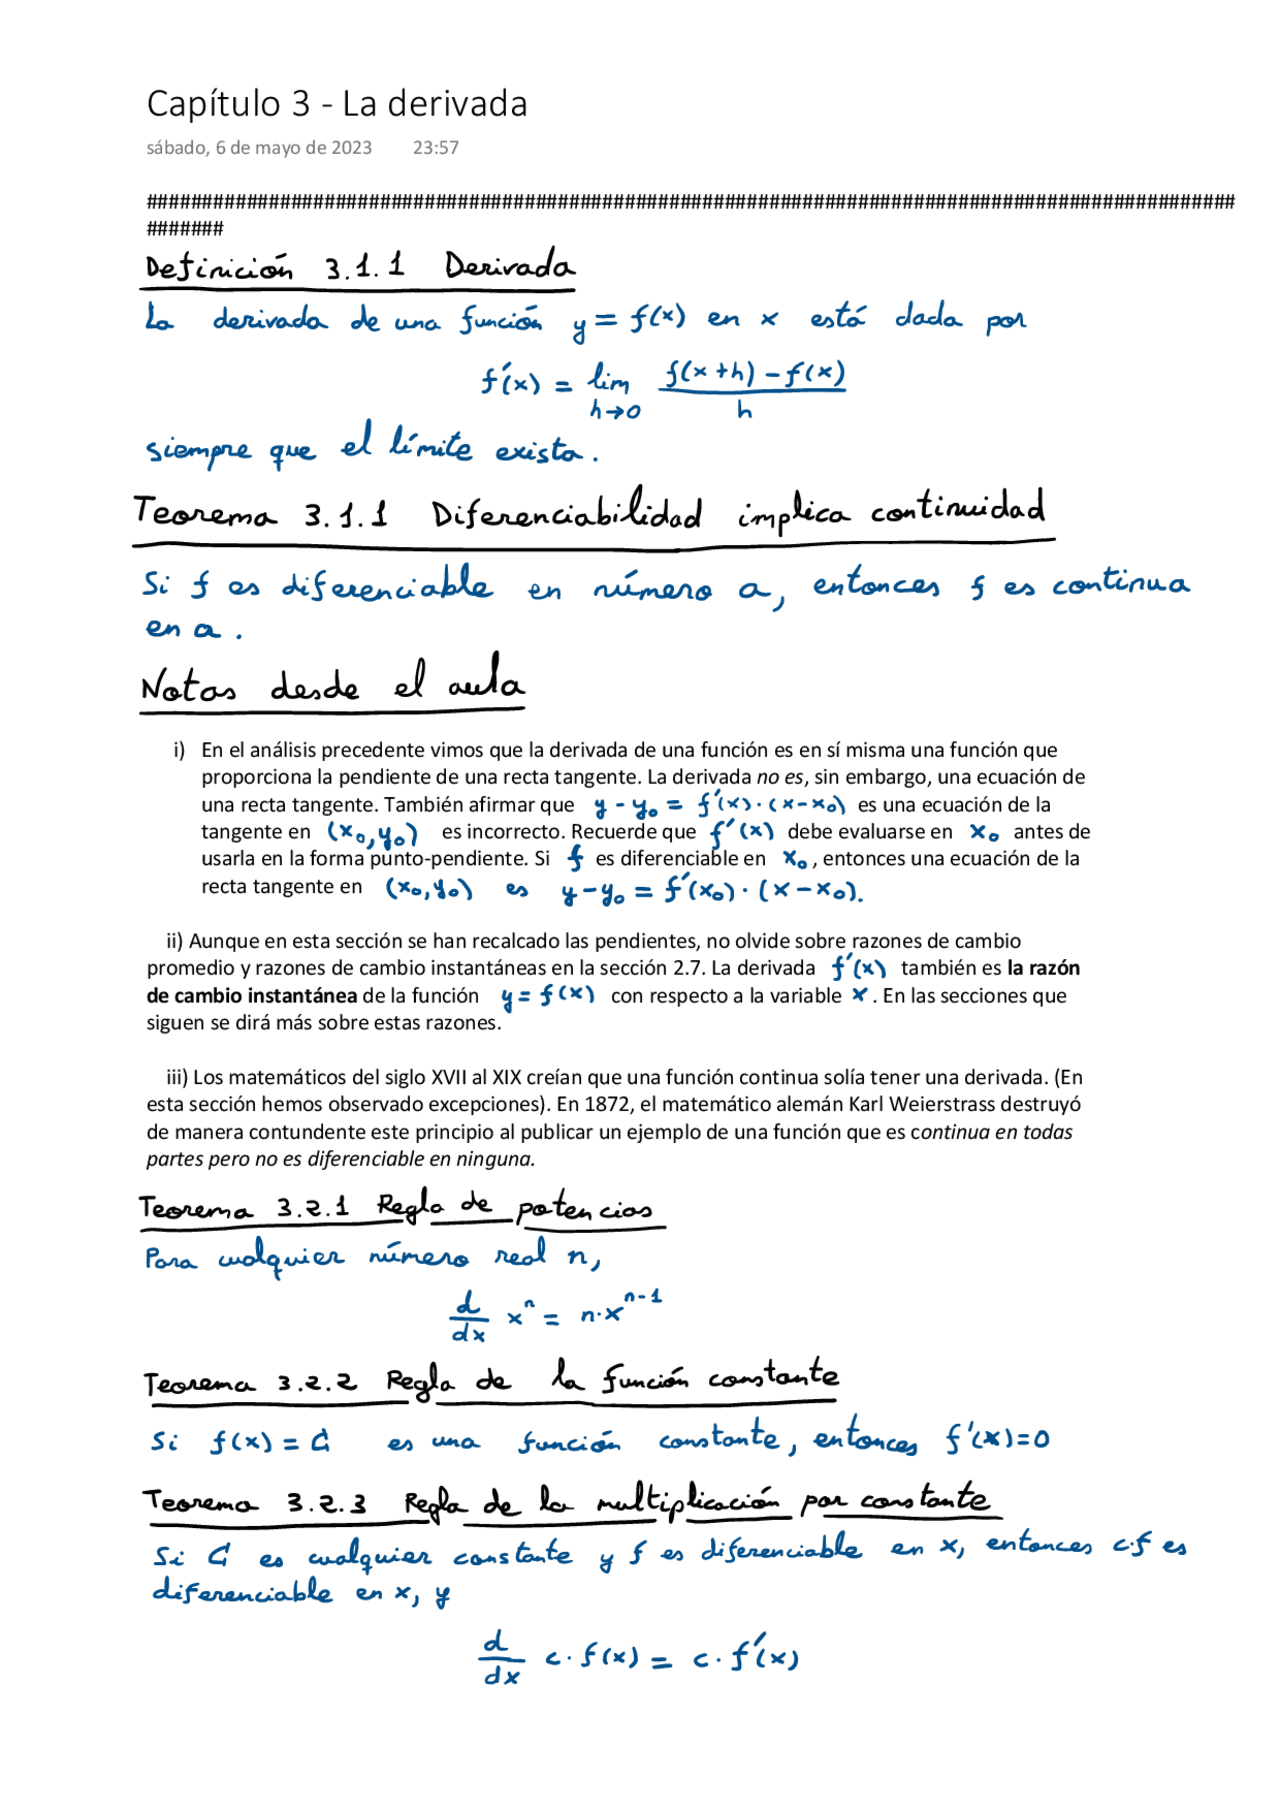 Capítulo 3 - La derivada
sábado, 6 de mayo de 2023 23:57
##################################################################################################
#######
Definición 3.1.1 Derivada
La derivada de una función y = f(x) en x está dada por
f'(x) = lim h→0 (f(x+h) - f(x)) / h
siempre que el límite exista.
Teorema 3.1.1 Diferenciabilidad implica continuidad
Si f es diferenciable en número a, entonces f es continua
en a.
Notas desde el aula
i) En el análisis precedente vimos que la derivada de una función es en sí misma una función que
proporciona la pendiente de una recta tangente. La derivada no es, sin embargo, una ecuación de
una recta tangente. También afirmar que y - y₀ = f'(x)·(x-x₀) es una ecuación de la
tangente en (x₀,y₀) es incorrecto. Recuerde que f'(x) debe evaluarse en x₀ antes de
usarla en la forma punto-pendiente. Si f es diferenciable en x₀, entonces una ecuación de la
recta tangente en (x₀,y₀) es y-y₀ = f'(x₀)·(x-x₀).
ii) Aunque en esta sección se han recalcado las pendientes, no olvide sobre razones de cambio
promedio y razones de cambio instantáneas en la sección 2.7. La derivada f'(x) también es la razón
de cambio instantánea de la función y = f(x) con respecto a la variable x. En las secciones que
siguen se dirá más sobre estas razones.
iii) Los matemáticos del siglo XVII al XIX creían que una función continua solía tener una derivada. (En
esta sección hemos observado excepciones). En 1872, el matemático alemán Karl Weierstrass destruyó
de manera contundente este principio al publicar un ejemplo de una función que es continua en todas
partes pero no es diferenciable en ninguna.
Teorema 3.2.1 Regla de potencias
Para cualquier número real n,
d/dx xⁿ = n·xⁿ⁻¹
Teorema 3.2.2 Regla de la función constante
Si f(x) = C es una función constante, entonces f'(x)=0
Teorema 3.2.3 Regla de la multiplicación por constante
Si C es cualquier constante y f es diferenciable en x, entonces c·f es
diferenciable en x, y
d/dx c·f(x) = c·f'(x)